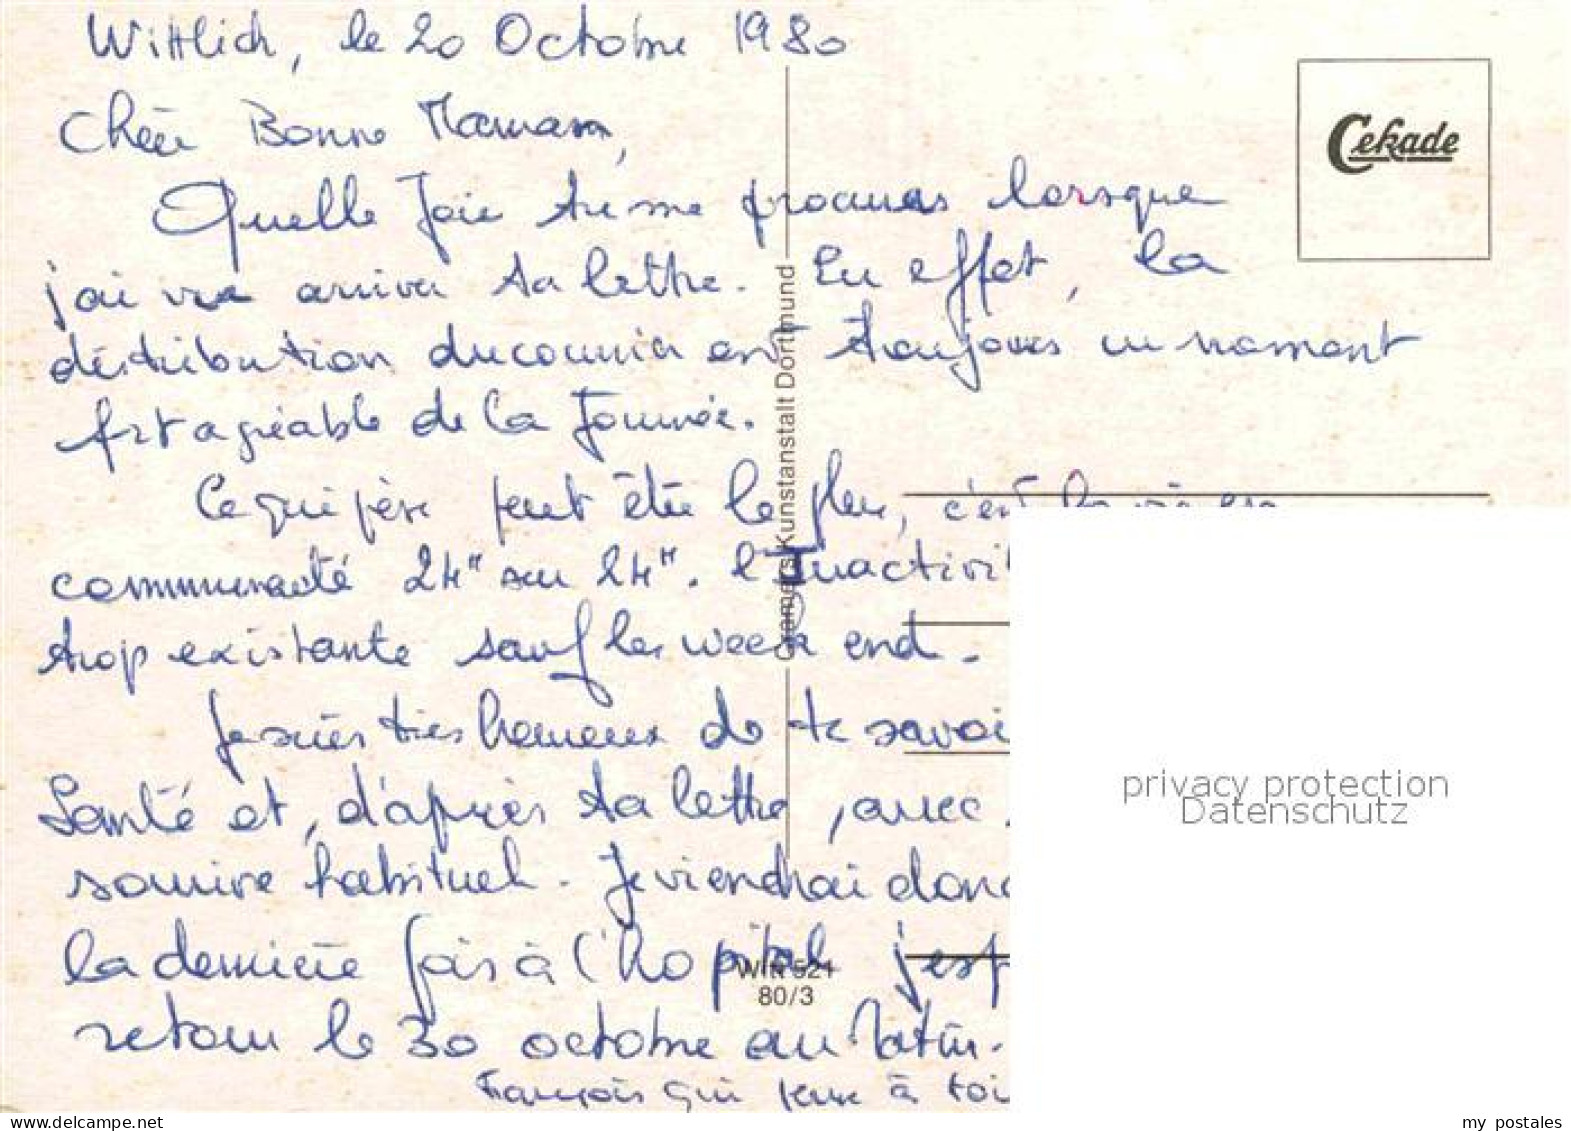 Wittlich, le 20 Octobre 1980
Chère Bonne Maman,
Cekade
Quelle Joie tu me procuras lorsque
j'ai vu arriver ta lettre. En effet, la
distribution du courrier est toujours un moment
fort agréable de la Journée.
Ce qui pèse peut être le plus, c'est la vie en
communauté 24" sur 24". l'Inactivi
trop existante sauf les week end.
Je suis très heureux de te savoi
Santé et, d'après ta lettre, avec
sourire habituel. Je viendrai donc
la dernière fois à l'hopital j'esp
retour le 30 octobre au Matin.
François qui pense à toi
Cramers Kunstanstalt Dortmund
Witt 521
80/3
privacy protection
Datenschutz
www.delcampe.net
my_postales